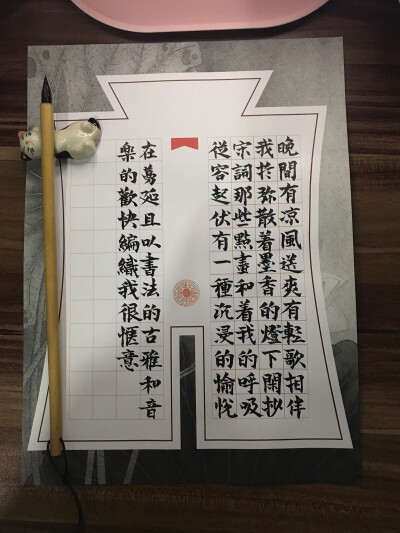 晚間有凉風送爽有輕歌相伴
我於弥散着墨香的燈下閑抄
宋詞那些點畫和着我的呼吸
從容起伏有一種沉浸的愉悅
在蔓延且以書法的古雅和音
樂的歡快編織我很愜意